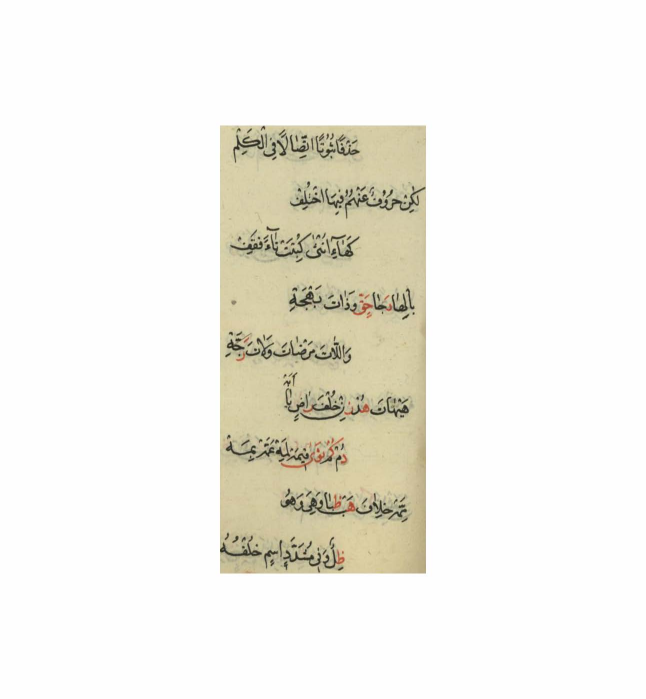 حَذْفًا ثُبُوتًا اتِّصَالًا فِي الْكَلِمْ
لٰكِنْ حُرُوفٌ عَنْهُمُ فِيهَا اخْتُلِفْ
كَهَاءِ أُنْثَى كُتِبَتْ تَاءً فَقِفْ
بِالْهَا رَجَا حَقٌّ وَذَاتَ بَهْجَةِ
وَاللَّاتَ مَرْضَاتَ وَلَاتَ رَجَّةِ
هَيْهَاتَ هُدْ زِنْ خُلْفَ رَاضٍ يَا أَبَهْ
دُمْ كَمْ ثَوَى فِيمَهْ لِمَهْ عَمَّهْ بِمَهْ
مِمَّهْ خِلَافٌ هَبْ ظُبًا وَهِيَ وَهُوَ
ظِلٌّ وَفِي مُشَدَّدِ اسْمٍ خُلْفُهُ